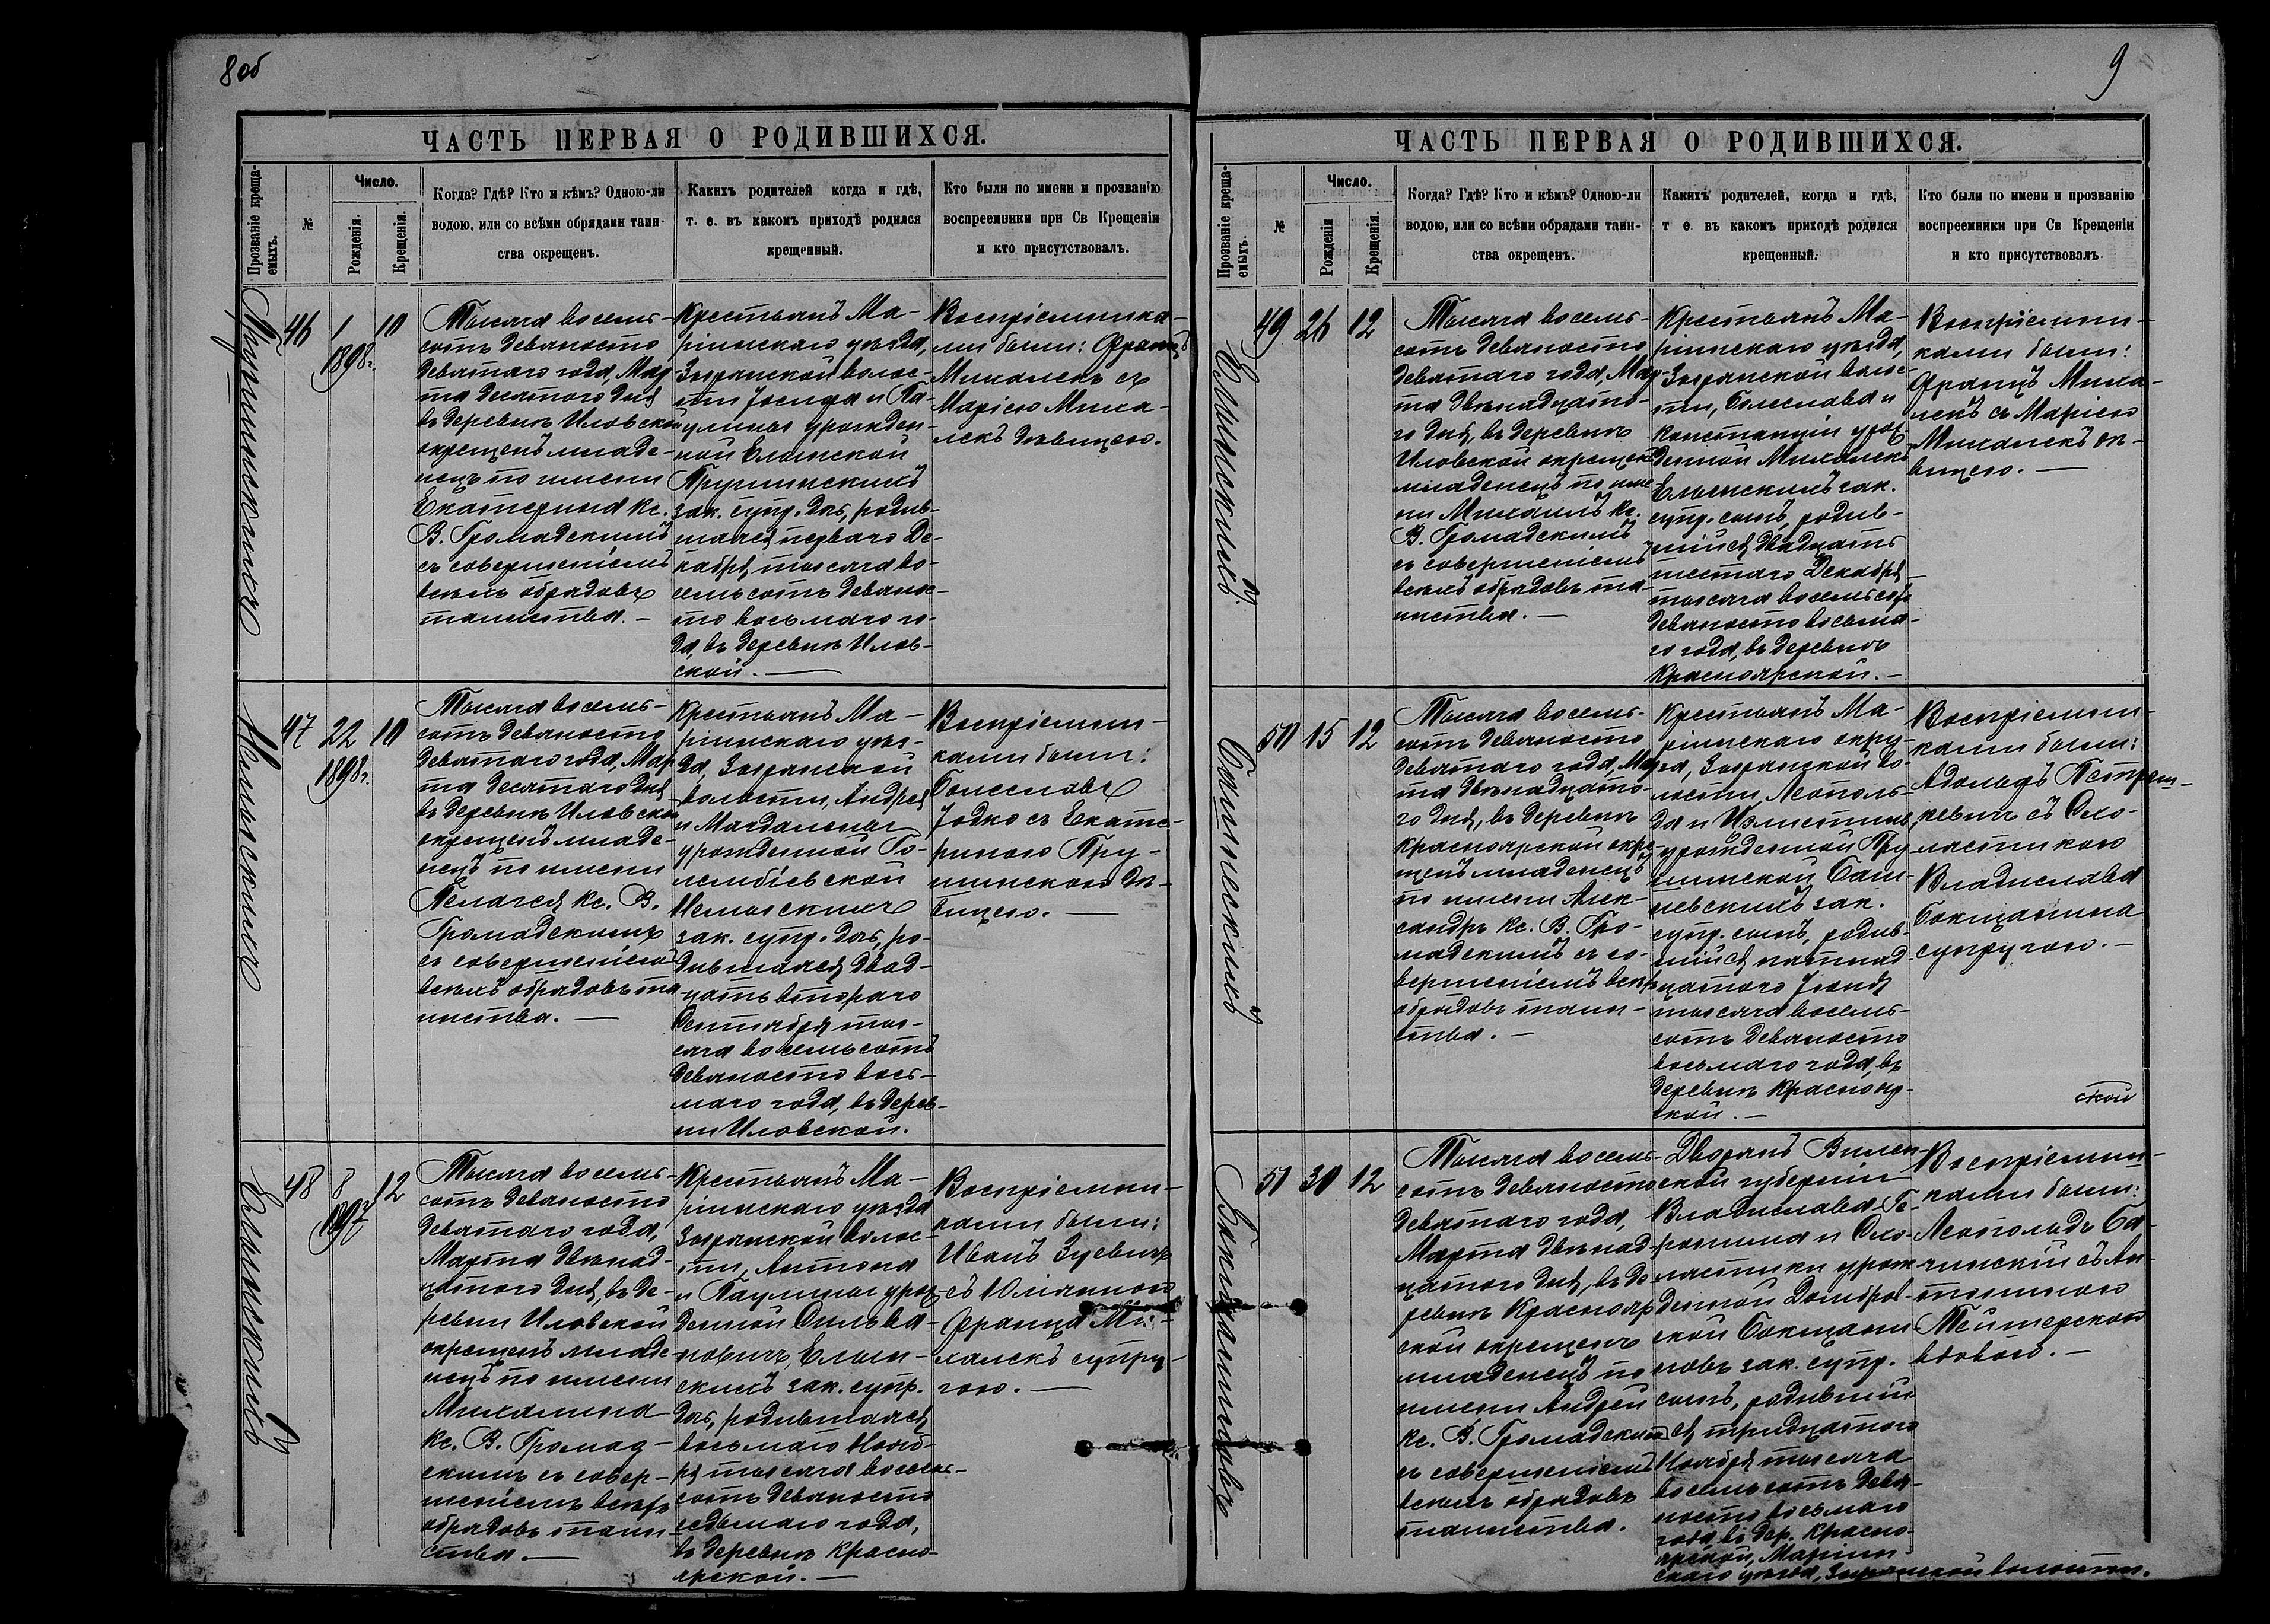 8 об
ЧАСТЬ ПЕРВАЯ О РОДИВШИХСЯ.
Прозваніе креща-
емыхъ.
№
Число.
Рожденія.
Крещенія.
Когда? Гдѣ? Кто и кѣмъ? Одною-ли
водою, или со всѣми обрядами таин-
ства окрещенъ.
Какихъ родителей когда и гдѣ,
т. е. въ какомъ приходѣ родился
крещенный.
Кто были по имени и прозванію
воспреемники при Св Крещеніи
и кто присутствовалъ.
46
1
1898 г.
10
Тысяча восемь-
сотъ девяносто
девятаго года, Мар
та десятаго дня
въ деревнѣ Иловской
окрещенъ младе-
нецъ по имени
Екатерина кс.
В. Громадскимъ
съ совершеніемъ
всѣхъ обрядовъ
таинства. -
Крестьянъ Ма-
ріинскаго уѣзда,
Зырянской волос-
ти Іосифа и Па-
улины урожден-
ной Елинской
Прушинскихъ
зак. супр. дчь, родив-
шаяся перваго Де-
кабря тысяча во-
семьсотъ девянос-
то восьмаго го-
да, въ деревнѣ Илов-
ской. -
Воспріемника-
ми были: Францъ
Михалекъ съ
Маріею Миха-
лекъ дѣвицею.
47
22
1898 г.
10
Тысяча восемь-
сотъ девяносто
девятаго года, Мар
та десятаго дня
въ деревнѣ Иловской
окрещенъ младе-
нецъ по имени
Пелагея кс. В.
Громадскимъ
съ совершеніемъ
всѣхъ обрядовъ та
инства. -
Крестьянъ Ма-
ріинскаго уѣз-
да, Зырянской
волости, Андрея
и Магдалены
урожденной Го-
лембіевской
зак. супр. дчь, ро-
дившаяся двад-
цать втораго
Сентября ты-
сяча восемьсотъ
девяносто вось-
маго года, въ дерев-
ни Иловской.
Воспріемни-
ками были:
Болеславъ
Іодко съ Екате-
риною Пру-
шинскою дѣ-
вицею. -
Елинскихъ
48
8
1897
12
Тысяча восемь-
сотъ девяносто
девятаго года,
Марта двѣнад-
цатаго дня, въ де-
ревни Иловской
окрещенъ младе-
нецъ по имени
Михалина
кс. В. Громад-
скимъ съ совер-
шеніемъ всѣхъ
обрядовъ таин
ства. -
Крестьянъ Ма-
ріинскаго уѣзда
Зырянской волос-
ти, Антона
и Паулины урож-
денной Сильва-
новичъ, Елин-
скихъ зак. супр.
дчь, родившаяся
восьмаго Нояб-
ря тысяча восемь-
сотъ девяносто
седьмаго года,
въ деревнѣ Красно-
ярской. -
Воспріемни-
ками были:
Иванъ Зуевичъ
съ Юліанною
Франца Ми-
халекъ супру-
гою. -
9
ЧАСТЬ ПЕРВАЯ О РОДИВШИХСЯ.
Прозваніе креща-
емыхъ.
№
Число.
Рожденія
Крещенія.
Когда? Гдѣ? Кто и кѣмъ? Одною-ли
водою, или со всѣми обрядами таин-
ства окрещенъ.
Какихъ родителей, когда и гдѣ,
т е. въ какомъ приходѣ родился
крещенный.
Кто были по имени и прозванію
воспреемники при Св Крещеніи
и кто присутствовалъ.
Елинскихъ.
49
26
12
Тысяча восемь-
сотъ девяносто
девятаго года, Мар
та двѣнадцата-
го дня, въ деревнѣ
Иловской окрещенъ
младенецъ по име
ни Михаилъ кс.
В. Громадскимъ
съ совершеніемъ
всѣхъ обрядовъ та-
инства. -
Крестьянъ Ма-
ріинскаго уѣзда,
Зырянской волос-
ти, Болеслава и
Констанціи урож
денной Михалекъ
Елинскихъ зак.
супр. сынъ, родив-
шійся двадцать
шестаго Декабря
тысяча восемьсотъ
девяносто восьма-
го года, въ деревнѣ
Красноярской. -
Воспріемни-
ками были:
Францъ Миха-
лекъ съ Маріею
Михалекъ дѣ-
вицею. -
50
15
12
Тысяча восемь-
сотъ девяносто
девятаго года, Мар
та двѣнадцата-
го дня, въ деревнѣ
Красноярской окре-
щенъ младенецъ
по имени Алек-
сандръ кс. В. Гро-
мадскимъ съ со-
вершеніемъ всѣхъ
обрядовъ таин-
ства. -
Крестьянъ Ма-
ріинскаго окру-
га, Зырянской во-
лости, Леополь-
да и
урожденной Пру
шинской
зак.
супр. сынъ, родив-
шійся пятнад-
цатаго Іюня
тысяча восемь-
сотъ девяносто
восьмаго года, въ
деревнѣ Краснояр-
ской. -
Воспріемни-
ками были:
Адольфъ Петраш-
кевичъ съ Схо-
ластикою
Владислава
Бокщанина
супругою. -
ской
Бокщаниновъ
51
30
12
Тысяча восемь-
сотъ девяносто
девятаго года,
Марта двѣнад-
цатаго дня, въ де
ревнѣ Краснояр
ской окрещенъ
младенецъ по
имени Андрей
кс. В. Громадскимъ
съ совершеніемъ
всѣхъ обрядовъ
таинства.
Дворянъ Вилен-
ской губерніи
Владислава Ге-
ронима и Схо-
ластики урож-
денной Домбров-
ской Бокщани-
новъ зак. супр.
сынъ, родившій
ся тридцатаго
Ноября тысяча
восемьсотъ девя-
носто восьмаго
года, въ дер. Красно-
ярской, Маріин-
скаго уѣзда, Зырянской волости.
Воспріемни-
ками были:
Леопольдъ Ба-
чинскій съ Ан-
тониною
вдовою. -